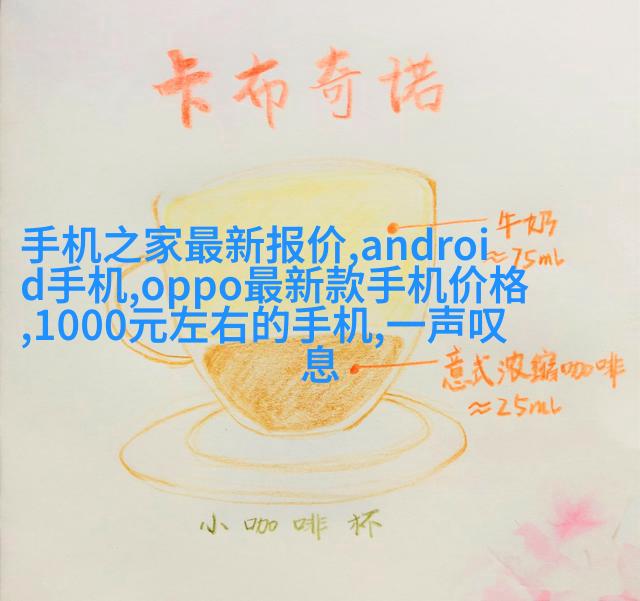 卡布奇诺
牛奶
≈75mL
手机之家最新报价,androi
d手机,oppo最新款手机价格
,1000元左右的手机,一声叹
息
意式浓缩咖啡
≈25mL
小咖啡杯